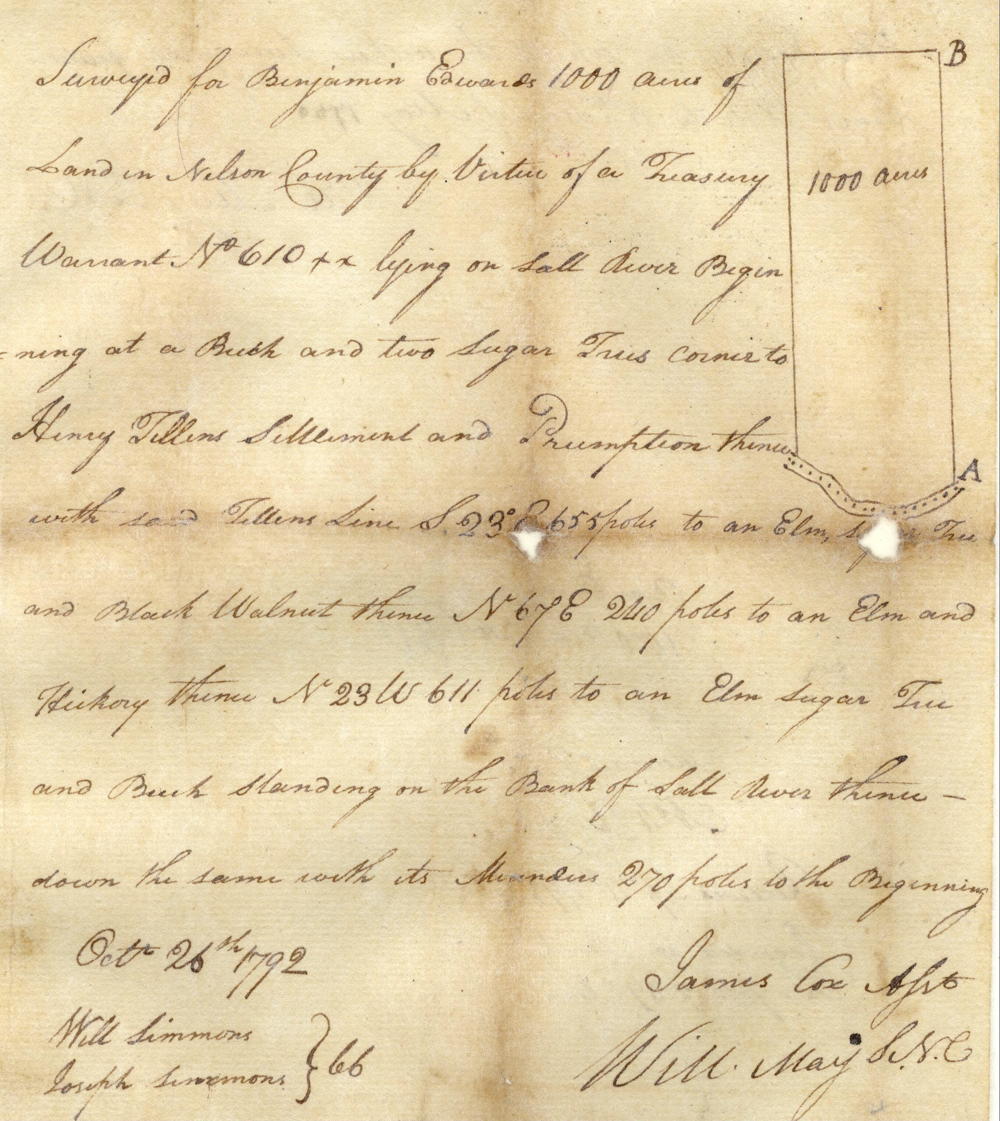 Survey'd for Benjamin Edwards 1000 acres of
Land in Nelson County by Virtue of a Treasury
Warrant No 610 xx lying on Salt River Begin
=ning at a Beech and two Sugar Trees corner to
Henry Tillens Settlement and Preemption thence
with said Tillens Line S. 23° E 655 poles to an Elm, Tree
and Black Walnut thence N 67 E 240 poles to an Elm and
Hickory thence N 23 W 611 poles to an Elm Sugar Tree
and Beech standing on the Bank of Salt River thence —
down the same with its Meanders 270 poles to the Beginning
Octr 26th 1792
James Cox Asst
Will Simmons
Joseph Simmons } 66
Will. May S.N.C
B
1000 acres
A